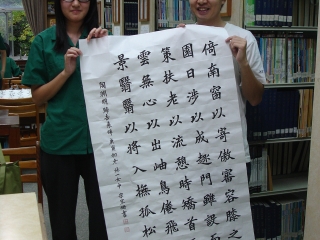 倚南窗以寄傲審容膝之
園日涉以成趣門雖設而
策扶老以流憩時矯首
雲無心以出岫鳥倦飛
景翳翳以將入撫孤松
陶淵明歸去來辭